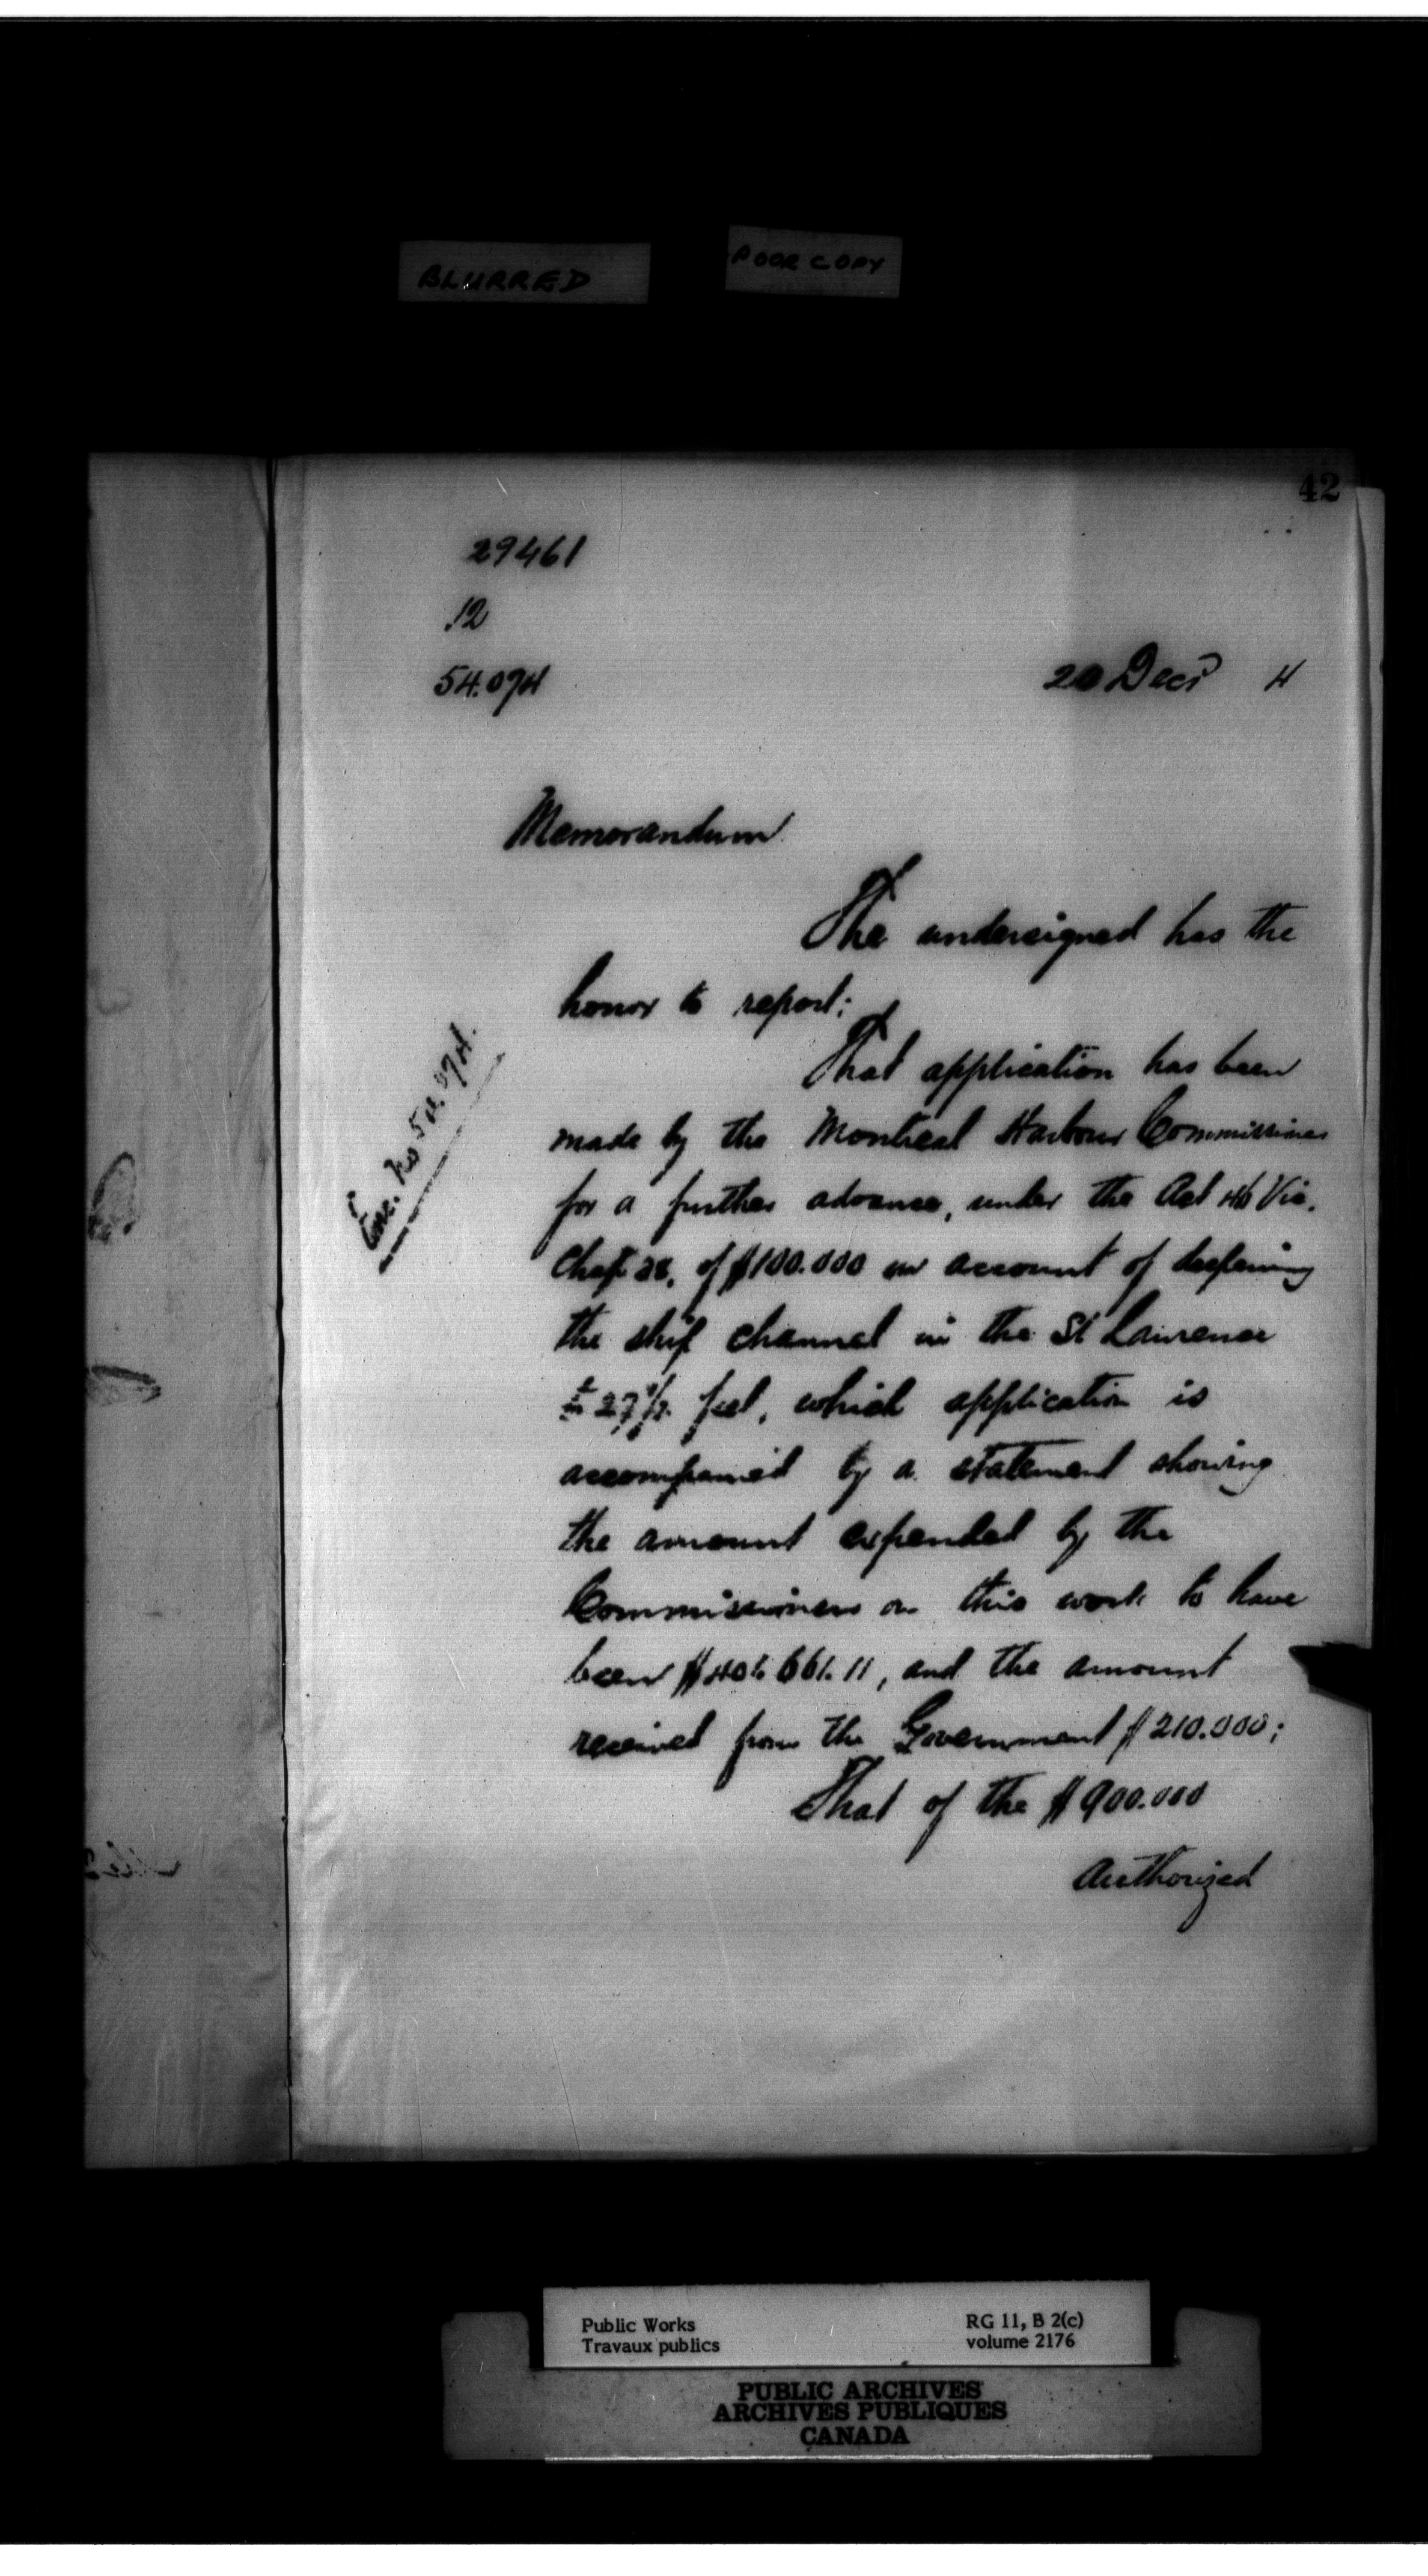 BLURRED
POOR COPY
42
29461
12
54.074
20 Decr 4
Memorandum
The undersigned has the
honor to report:
Enc. No 54.074.
That application has been
made by the Montreal Harbour Commissioners
for a further advance, under the Act 46 Vic.
Chap. 38, of $100.000 on account of deepening
the ship channel in the St Lawrence
to 27 1/2 feet, which application is
accompanied by a statement showing
the amount expended by the
Commissioners on this work to have
been 661.11, and the amount
received from the Government $210.000;
That of the $900.000
Authorized
Public Works
Travaux publics
RG 11, B 2(c)
volume 2176
PUBLIC ARCHIVES
ARCHIVES PUBLIQUES
CANADA